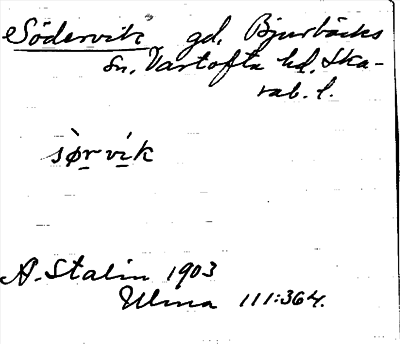 Södervik gd, Bjurbäcks
sn, Vartofta hd. Ska-
rab. l.
sø̀r vík
A. Stalin 1903
Ulma 111:364.